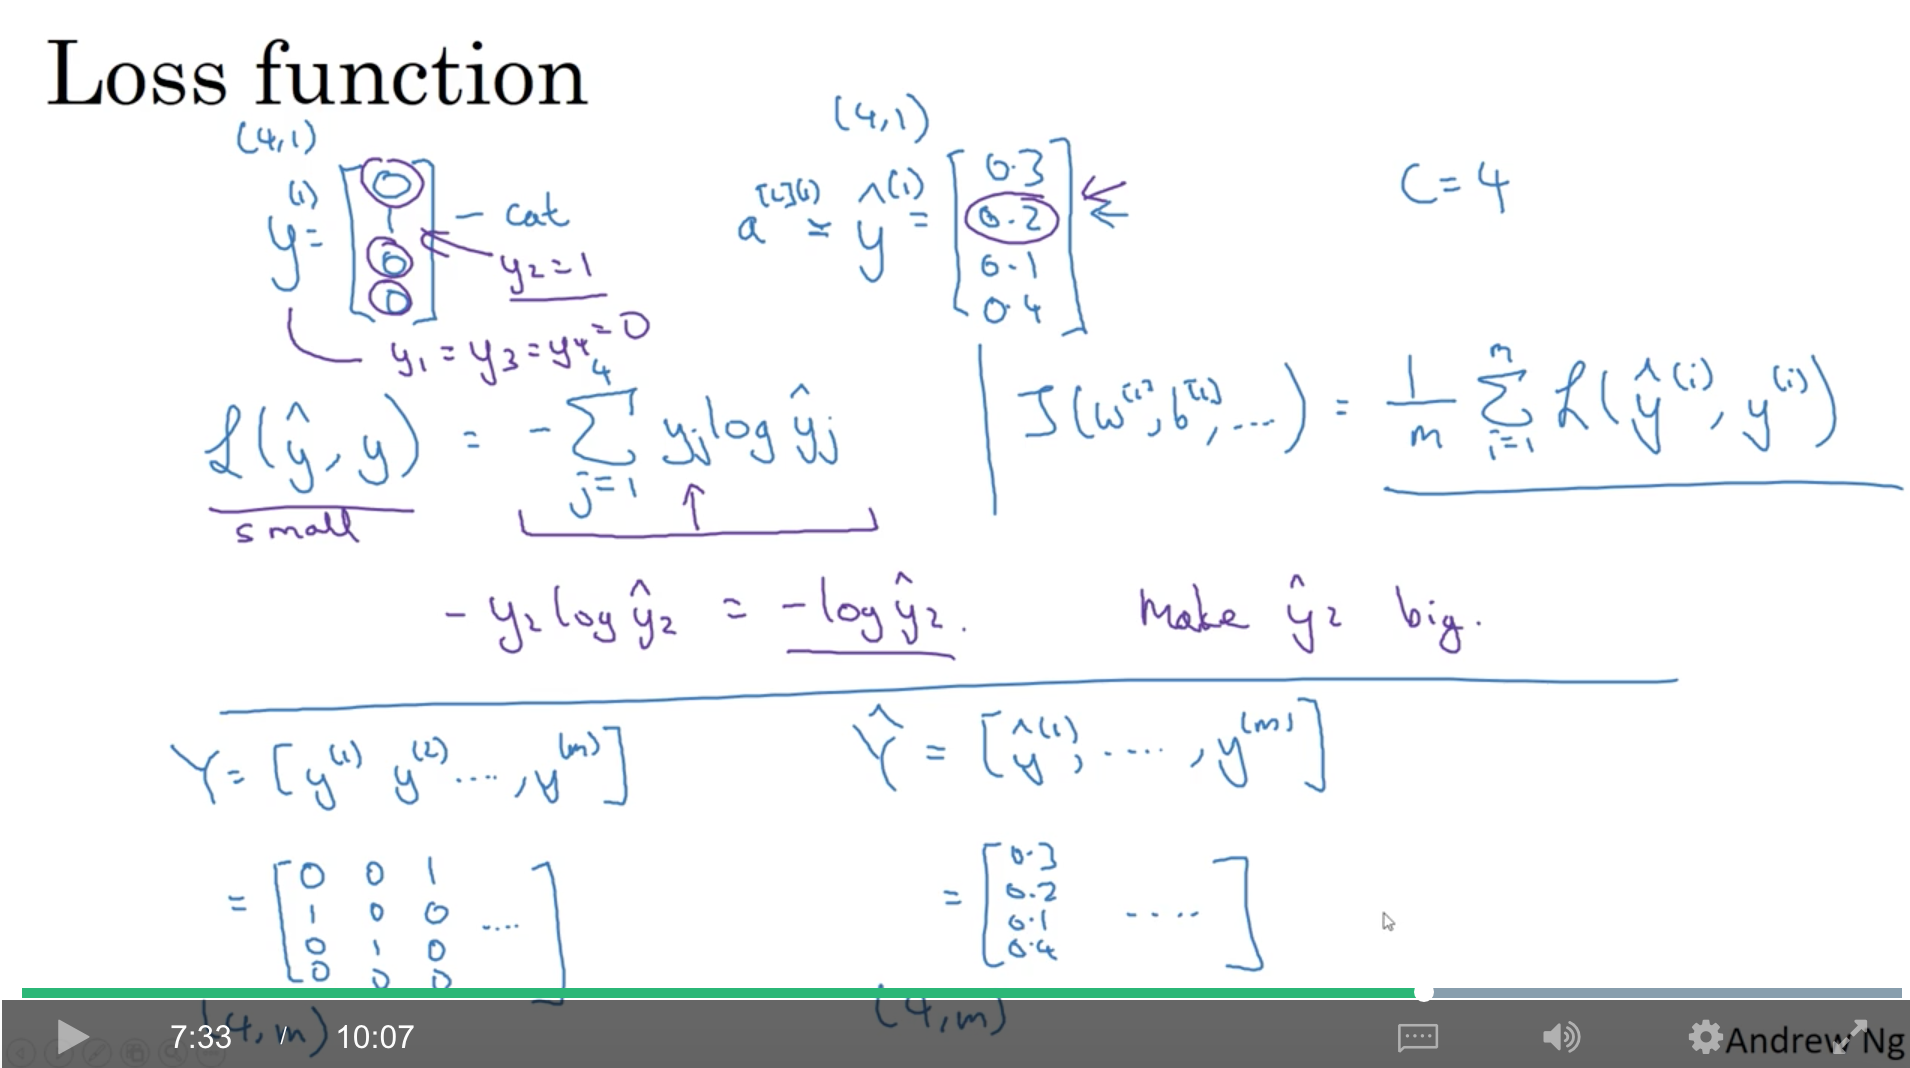 Loss function
(4,1)
y⁽¹⁾ = [0 1 0 0] - cat
y₂ = 1
y₁ = y₃ = y₄ = 0
(4,1)
a^[L](1) = ŷ^(1) = [0.3 0.2 0.1 0.4]
C = 4
L(ŷ, y) = - Σ_{j=1}^{4} yⱼ log ŷⱼ
small
J(w^[1], b^[1], ....) = 1/m Σ_{i=1}^{m} L(ŷ^(i), y^(i))
- y₂ log ŷ₂ = - log ŷ₂.
Make ŷ₂ big.
Y = [y^(1) y^(2) ...., y^(m)]
Ŷ = [ŷ^(1), ...., y^(m)]
= [0 0 1
1 0 0 ....
0 1 0
0 0 0]
= [0.3
0.2 ....
0.1
0.4]
(4,m)
(4,m)
7:33 / 10:07
Andrew Ng